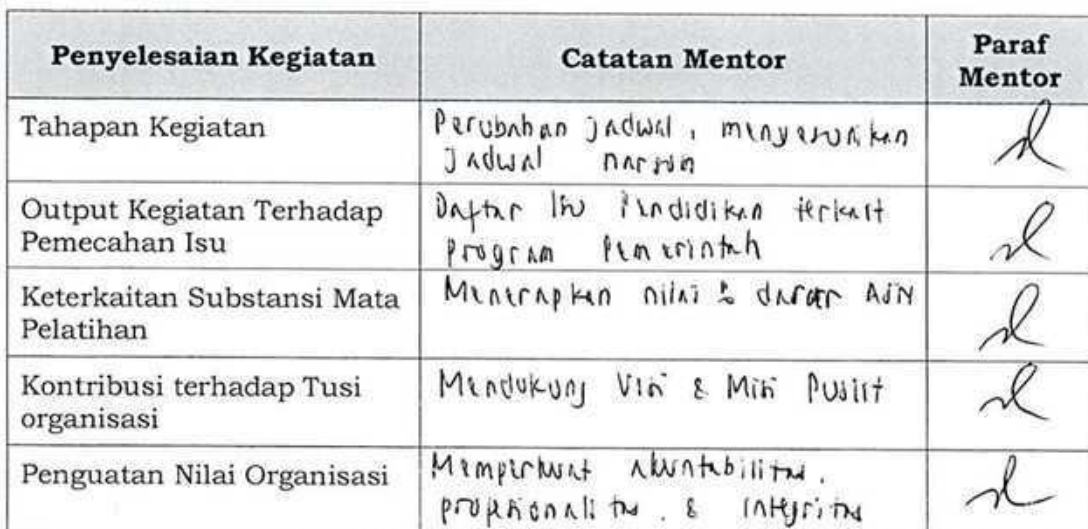 Penyelesaian Kegiatan
Catatan Mentor
Paraf
Mentor
Tahapan Kegiatan
Perubahan jadwal, menyesuaikan
jadwal narsum
Output Kegiatan Terhadap
Pemecahan Isu
Daftar Isu Pendidikan terkait
program Pemerintah
Keterkaitan Substansi Mata
Pelatihan
Menerapkan nilai2 dasar ASN
Kontribusi terhadap Tusi
organisasi
Mendukung Visi & Misi Puslit
Penguatan Nilai Organisasi
Memperkuat akuntabilitas,
profesionalitas, & Integritas